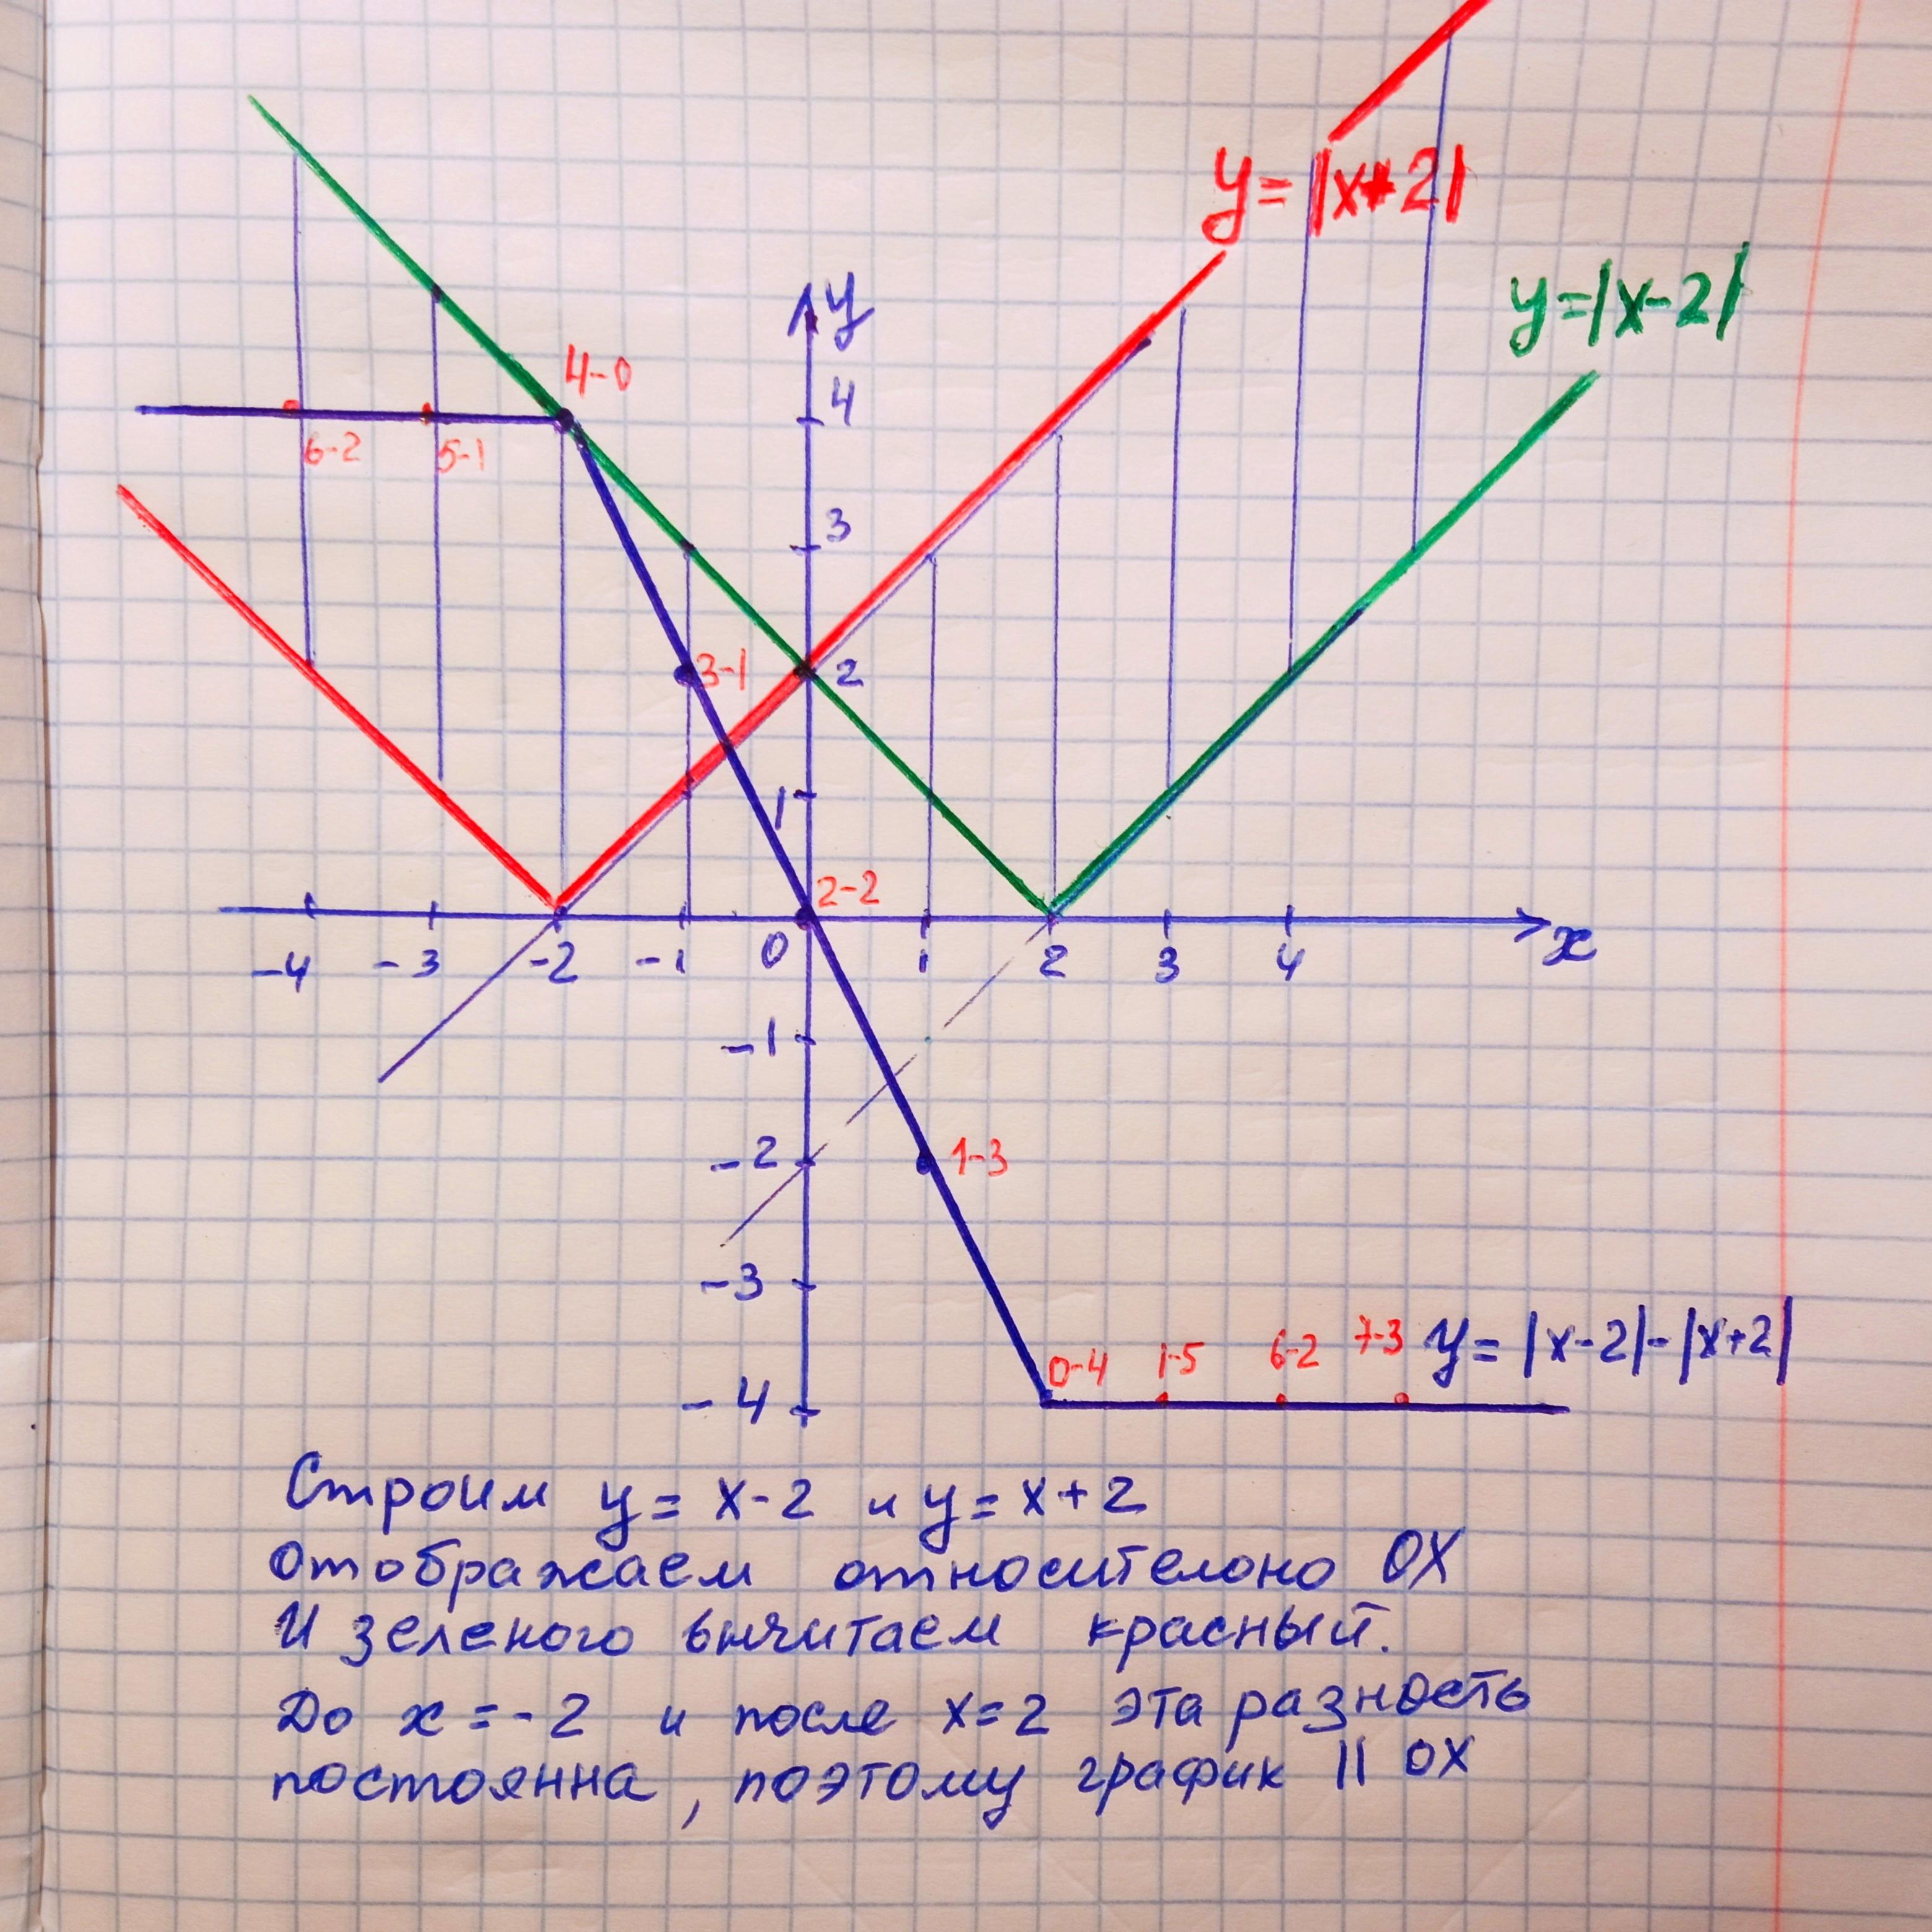 y=|x+2|
y=|x-2|
y
4-0
4
6-2 5-1
3
3-1 2
1
2-2
-4 -3 -2 -1 0 1 2 3 4 x
-1
-2 1-3
-3
0-4 1-5 6-2 7-3 y=|x-2|-|x+2|
-4
Строим y=x-2 и y=x+2
Отображаем относителоно OX
И зеленого вычитаем красный.
До x=-2 и после x=2 эта разность
постоянна, поэтому график || OX